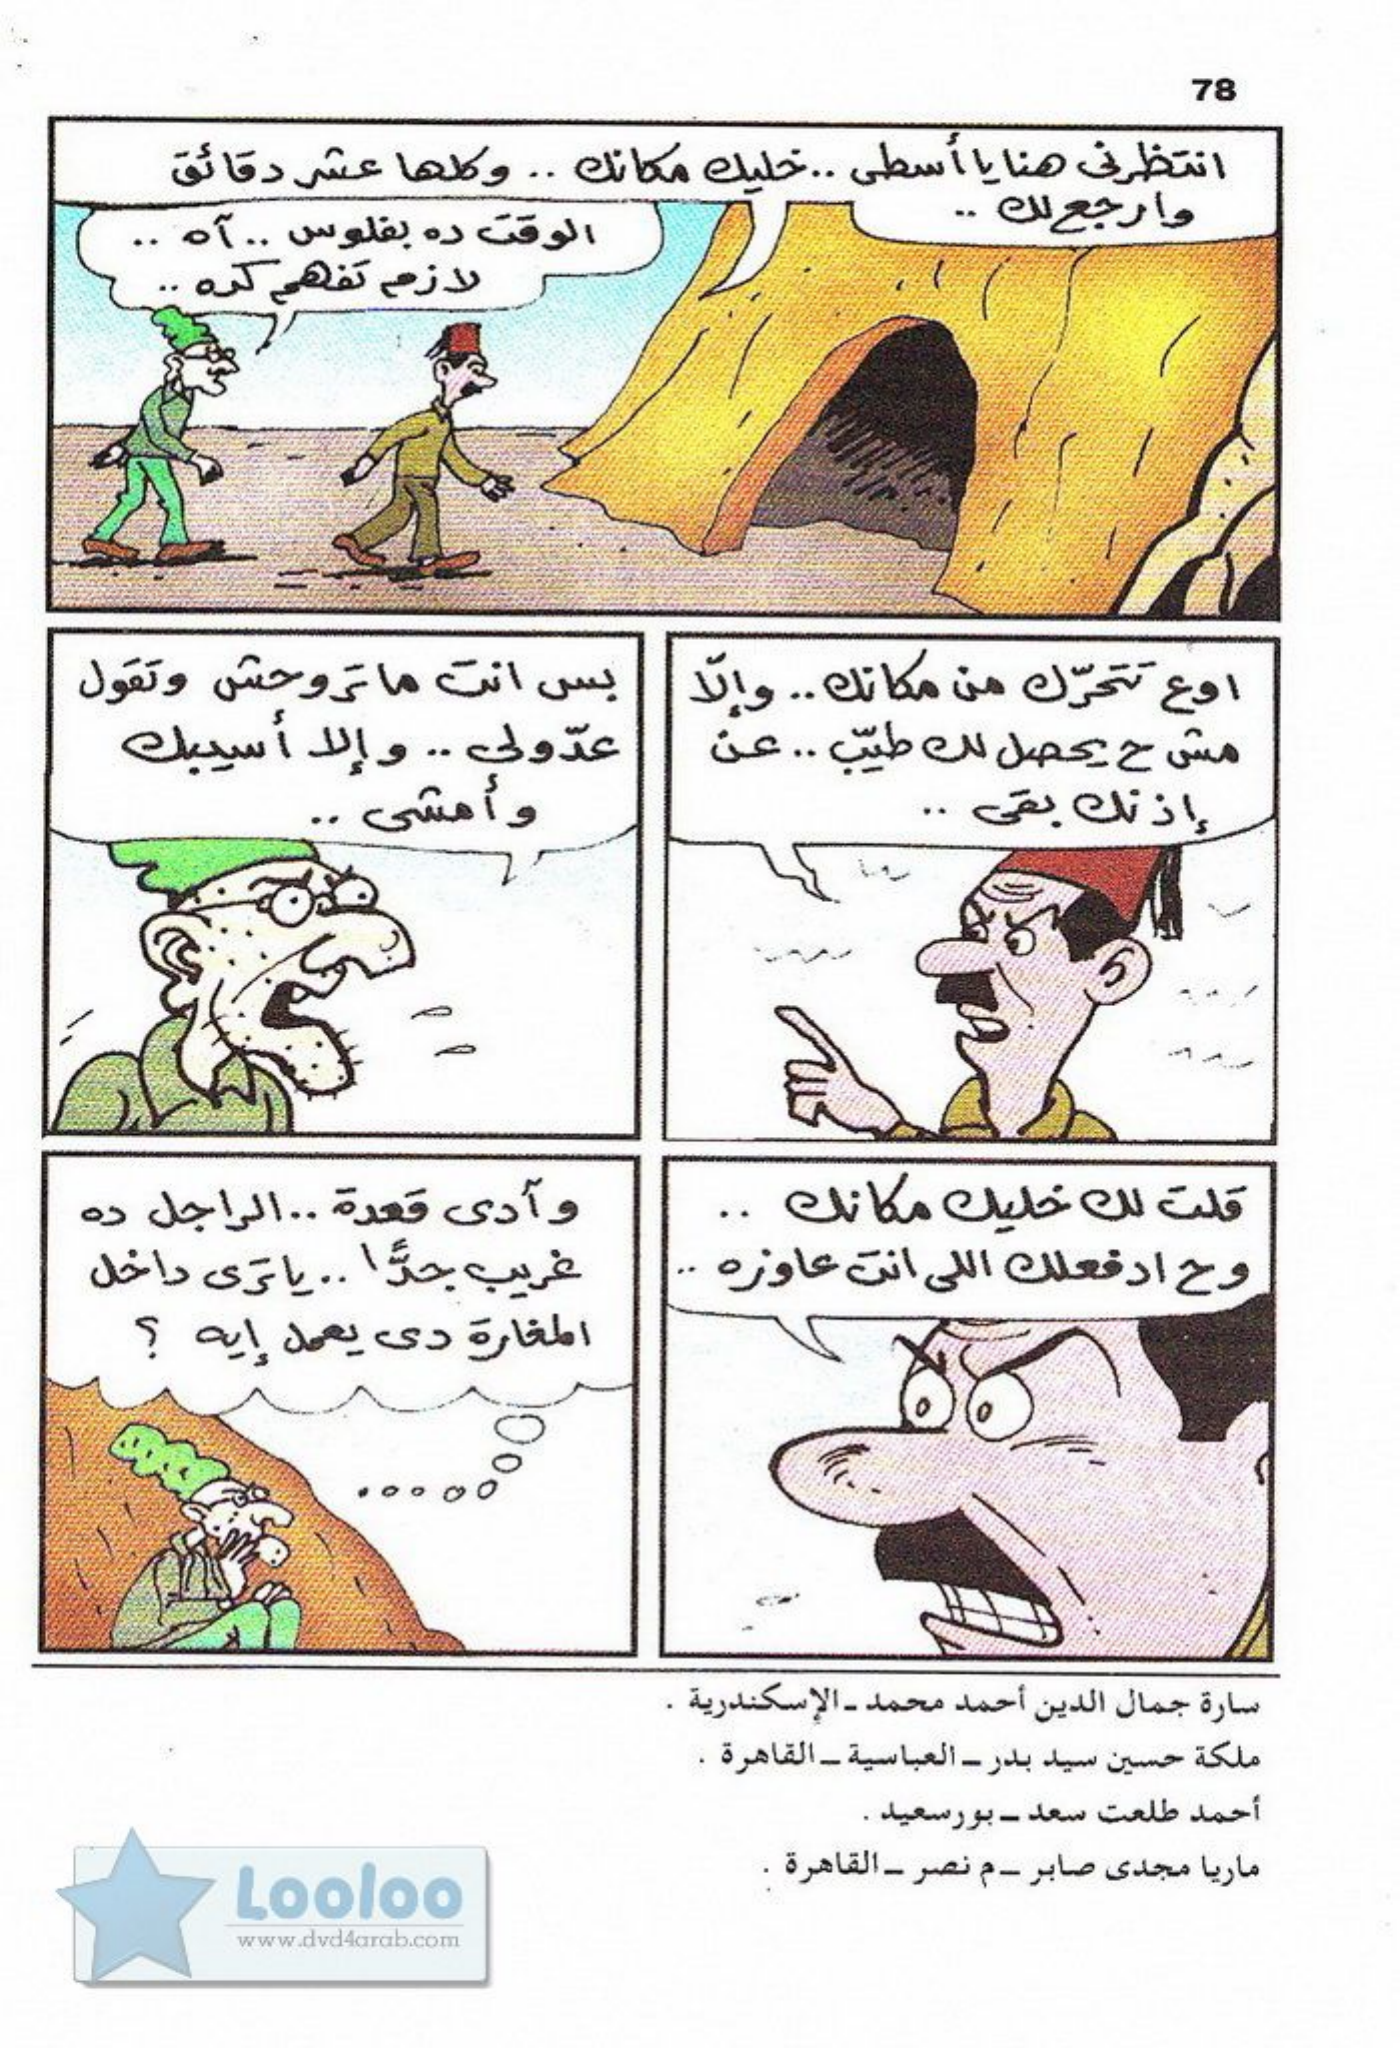 78
انتظرنى هنا يا أسطى .. خليك مكانك .. وكلها عشر دقائق
وارجع لك ..
الوقت ده بفلوس .. آه ..
لازم تفهم كده ..
اوع تتحرّك من مكانك .. وإلّا
مش ح يحصل لك طيّب .. عن
إذنك بقى ..
بس انت ما تروحش وتقول
عدّولى .. وإلا أسيبك
وأمشى ..
قلت لك خليك مكانك ..
وح ادفعلك اللى انت عاوزه ..
وآدى قعدة .. الراجل ده
غريب جدًّا .. يا ترى داخل
المغارة دى يعمل إيه ؟
سارة جمال الدين أحمد محمد ـ الإسكندرية .
ملكة حسين سيد بدر ـ العباسية ـ القاهرة .
أحمد طلعت سعد ـ بورسعيد .
ماريا مجدى صابر ـ م نصر ـ القاهرة .
Looloo
www.dvd4arab.com